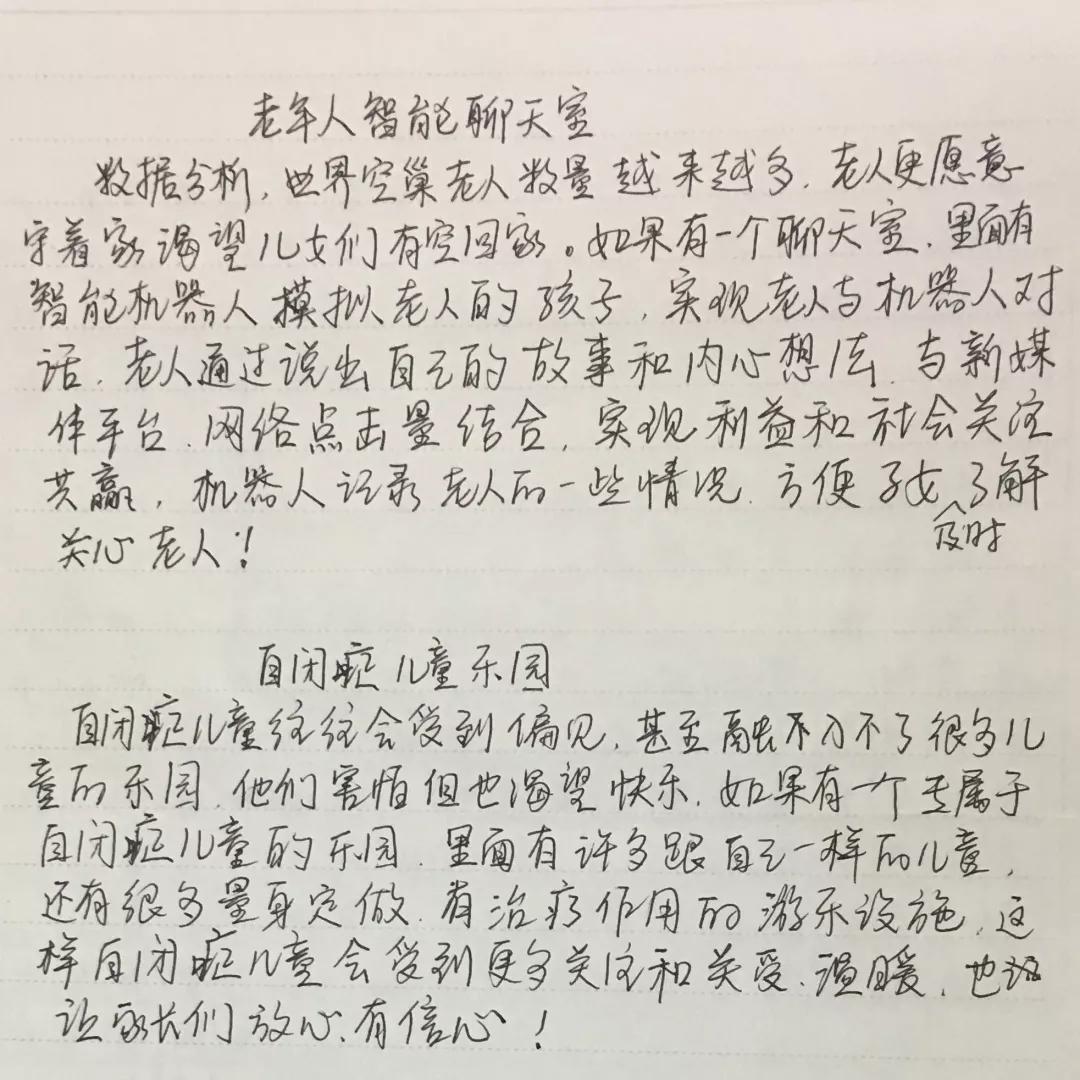 老年人智能聊天室
数据分析,世界空巢老人数量越来越多,老人更愿意
守着家渴望儿女们有空回家。如果有一个聊天室,里面有
智能机器人摸拟老人的孩子,实现老人与机器人对
话,老人通过说出自己的故事和内心想法,与新媒
体平台、网络点击量结合,实现利益和社会关注
共赢,机器人记录老人的一些情况,方便子女及时了解
关心老人!
自闭症儿童乐园
自闭症儿童往往会受到偏见,甚至融不入不了很多儿
童的乐园,他们害怕但也渴望快乐,如果有一个专属于
自闭症儿童的乐园,里面有许多跟自己一样的儿童,
还有很多量身定做、有治疗作用的游乐设施,这
样自闭症儿童会受到更多关注和关爱、温暖,也
让家长们放心、有信心!